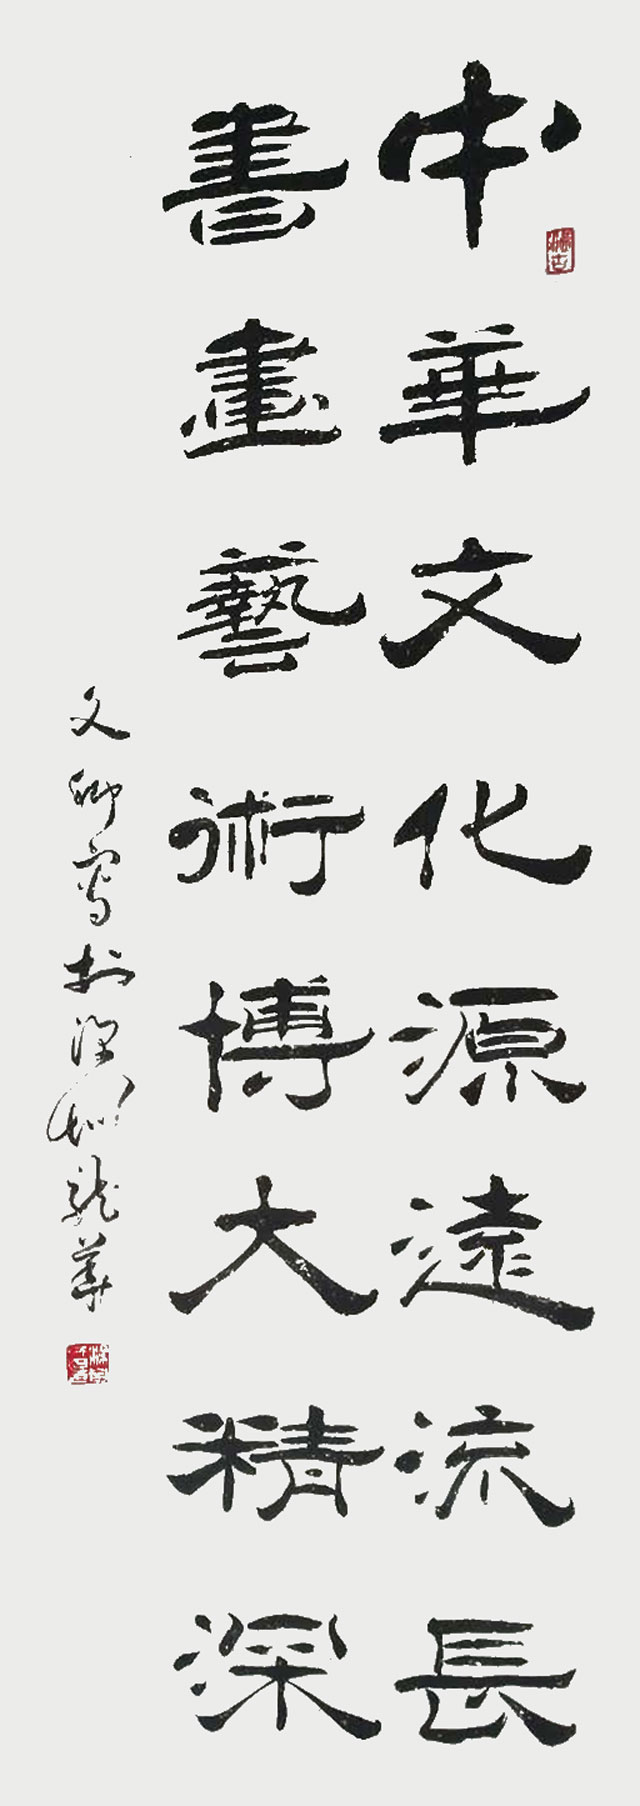 中華文化源遠流長
書畫藝術博大精深
文卿寫於深圳龍華